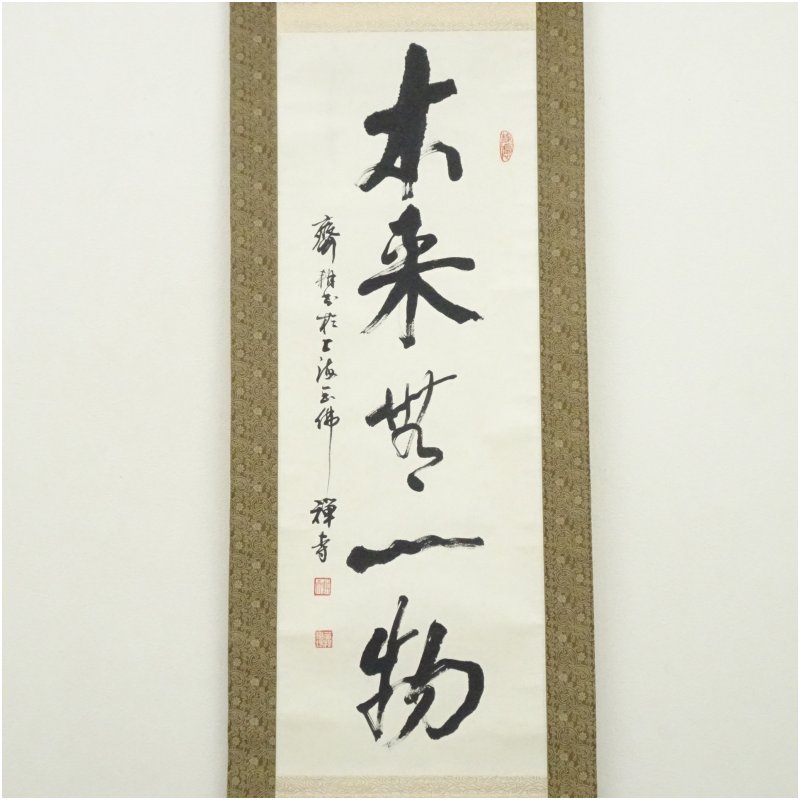 本来無一物
齊雅書於上海玉佛禪寺